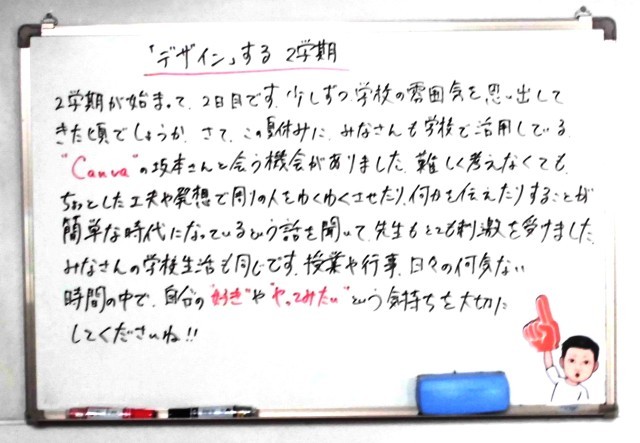 「デザイン」する 2学期
2学期が始まって、2日目です。少しずつ学校の雰囲気を思い出して
きた頃でしょうか。さて、この夏休みに、みなさんも学校で活用している
"Canva"の坂本さんと会う機会がありました。難しく考えなくても、
ちょっとした工夫や発想で周りの人をわくわくさせたり、何かを伝えたりすることが
簡単な時代になっているという話を聞いて、先生もとても刺激を受けました。
みなさんの学校生活も同じです。授業や行事、日々の何気ない
時間の中で、自分の"好き"や"やってみたい"という気持ちを大切に
してくださいね!!